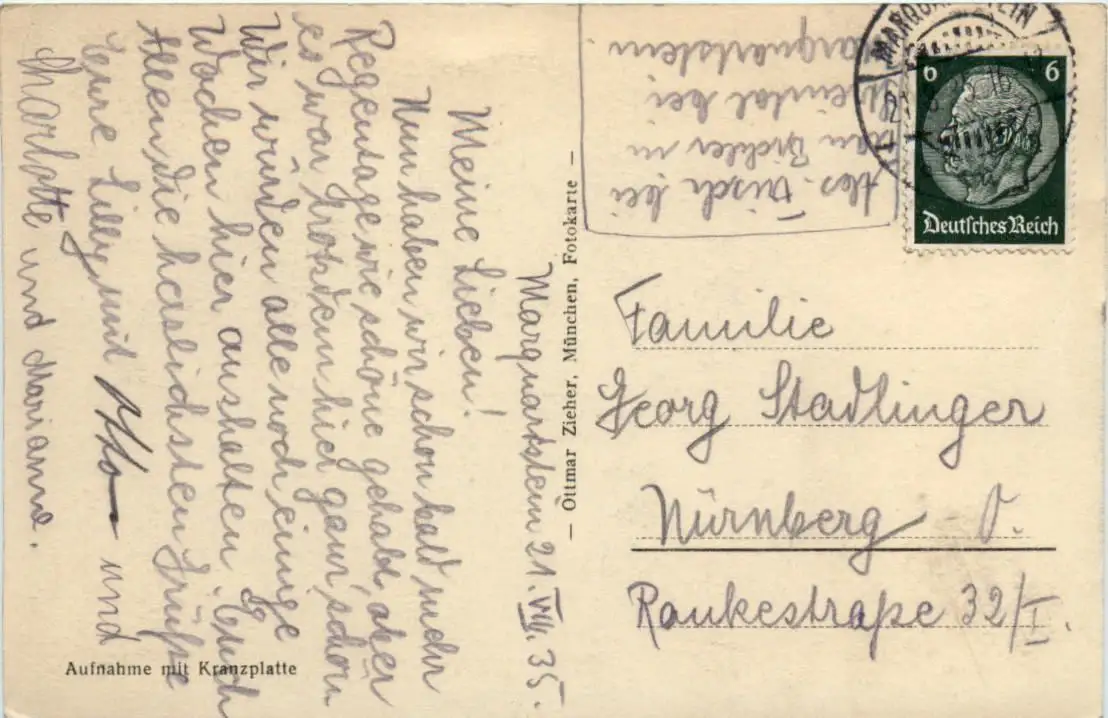 Marquartstein 21.VIII.35.
Meine Lieben!
Nun haben wir schon bald mehr
Regentage wie schöne gehabt, aber
es war trotzdem hier ganz schön
Wir würden alle noch einige
Wochen hier aushalten. Euch
Allen die herzlichsten Grüße
Eure Lilly mit Otto und
Charlotte und Marianne.
Aufnahme mit Kranzplatte
— Ottmar Zieher, München, Fotokarte —
Abs. Frisch bei
in
bei
Marquartstein
MARQUARTSTEIN
6 6
Deutsches Reich
Familie
Georg Stadlinger
Nürnberg O.
Rankestraße 32/I.